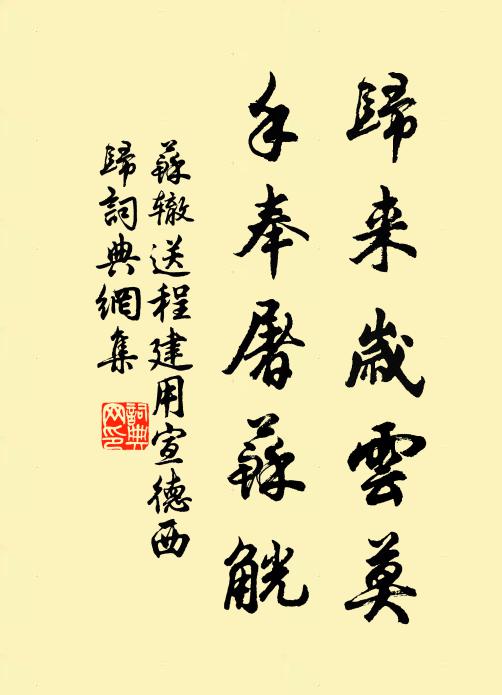 歸来歲雲莫
手奉屠蘇觥
蘇辙送程建用宣德西
歸詞典網集
詞典
网印